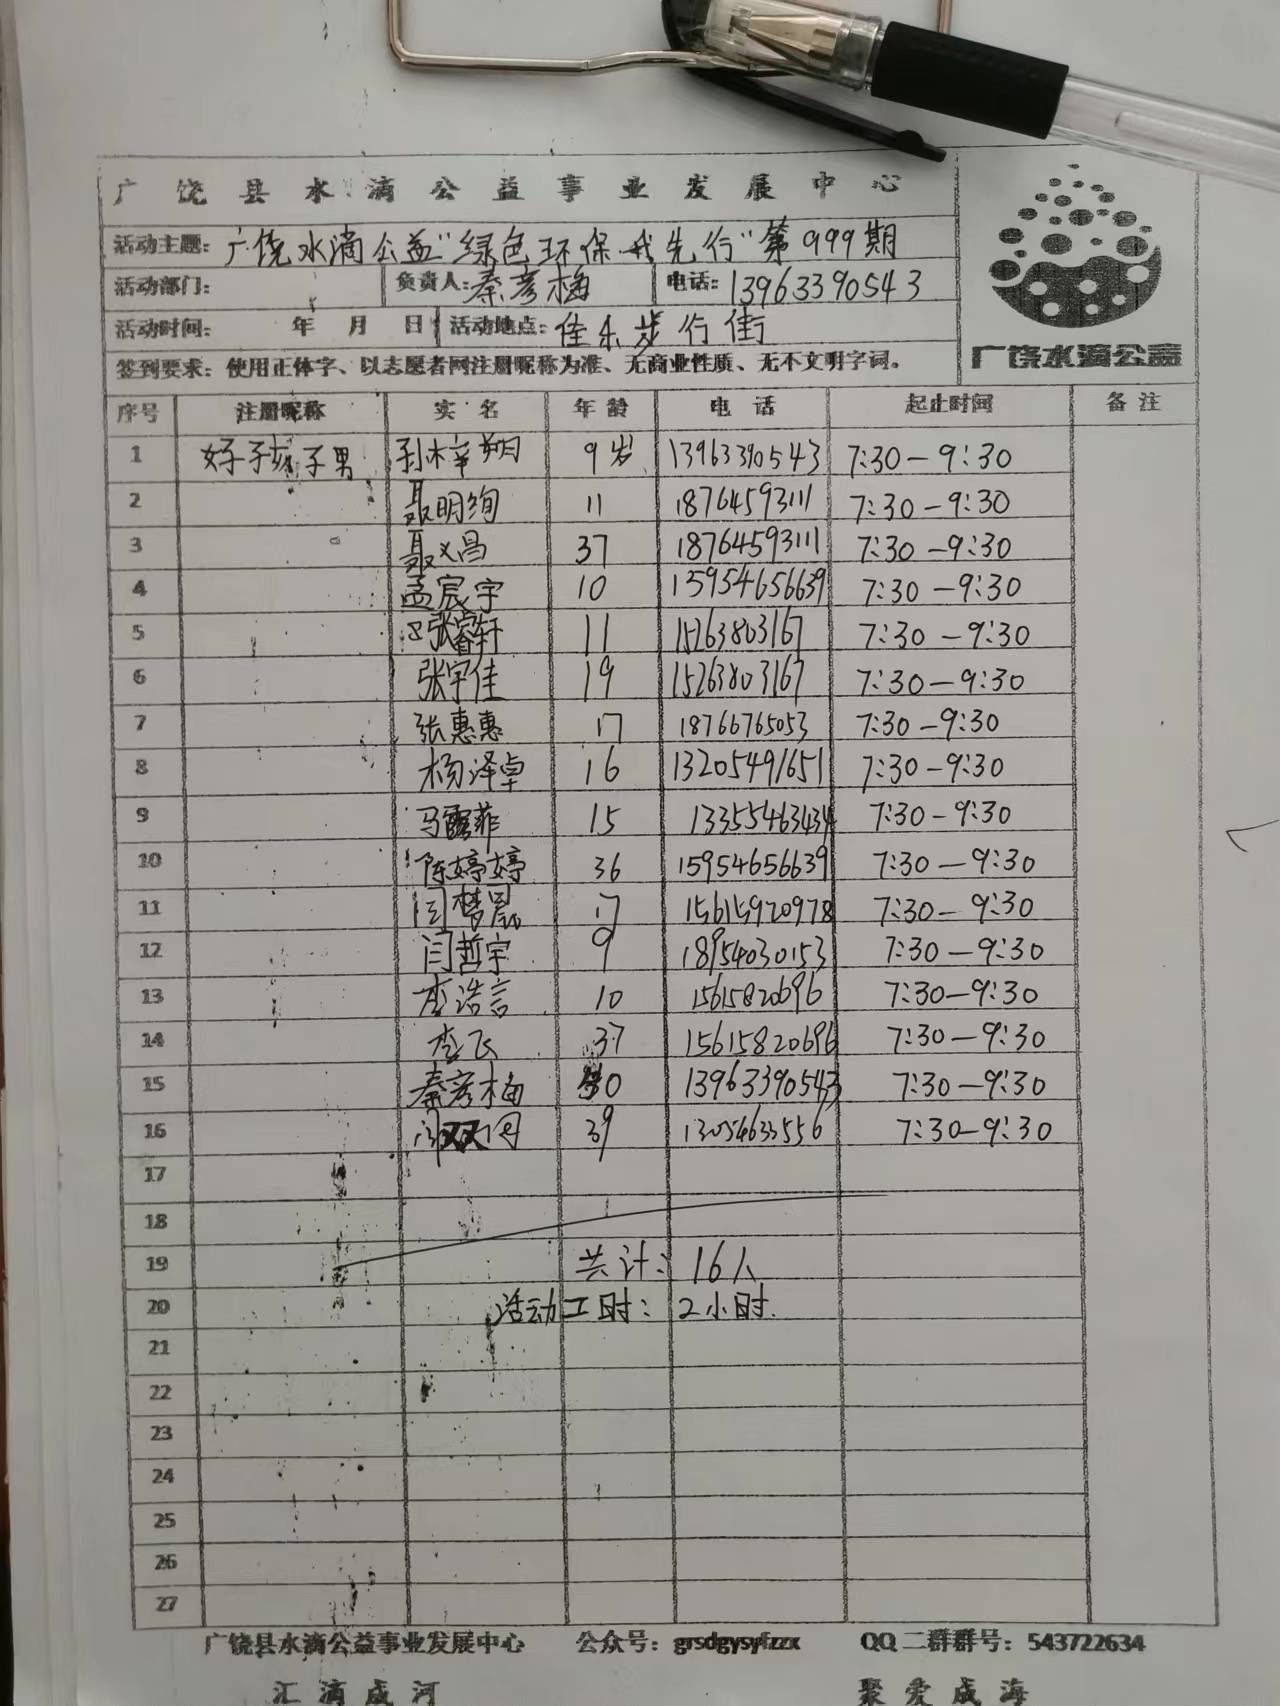 广饶县水滴公益事业发展中心
活动主题：广饶水滴公益"绿色环保我先行"第999期
活动部门： 负责人：秦彦梅 电话：13963390543
活动时间： 年 月 日 活动地点：佳乐步行街
签到要求：使用正体字、以志愿者网注册昵称为准、无商业性质、无不文明字词。
广饶水滴公益
序号 注册昵称 实名 年龄 电话 起止时间 备注
1 好孩子男 9岁 13963390543 7:30-9:30
2 聂明绚 11 18764593111 7:30-9:30
3 聂义昌 37 18764593111 7:30-9:30
4 孟宸宇 10 15954656639 7:30-9:30
5 张睿轩 11 15263803167 7:30-9:30
6 张宇佳 19 15263803167 7:30-9:30
7 张惠惠 17 18766765053 7:30-9:30
8 杨泽卓 16 13205491651 7:30-9:30
9 马露菲 15 13355463434 7:30-9:30
10 陈婷婷 36 15954656639 7:30-9:30
11 闫梦晨 17 15615920978 7:30-9:30
12 闫哲宇 9 18954030153 7:30-9:30
13 李浩言 10 15615820696 7:30-9:30
14 李飞 37 15615820696 7:30-9:30
15 秦彦梅 13963390543 7:30-9:30
16 39 13054633556 7:30-9:30
17
18
19 共计：16人
20 活动工时：2小时.
21
22
23
24
25
26
27
广饶县水滴公益事业发展中心 公众号：grsdgysyfzzx QQ二群群号：543722634
汇滴成河 聚爱成海